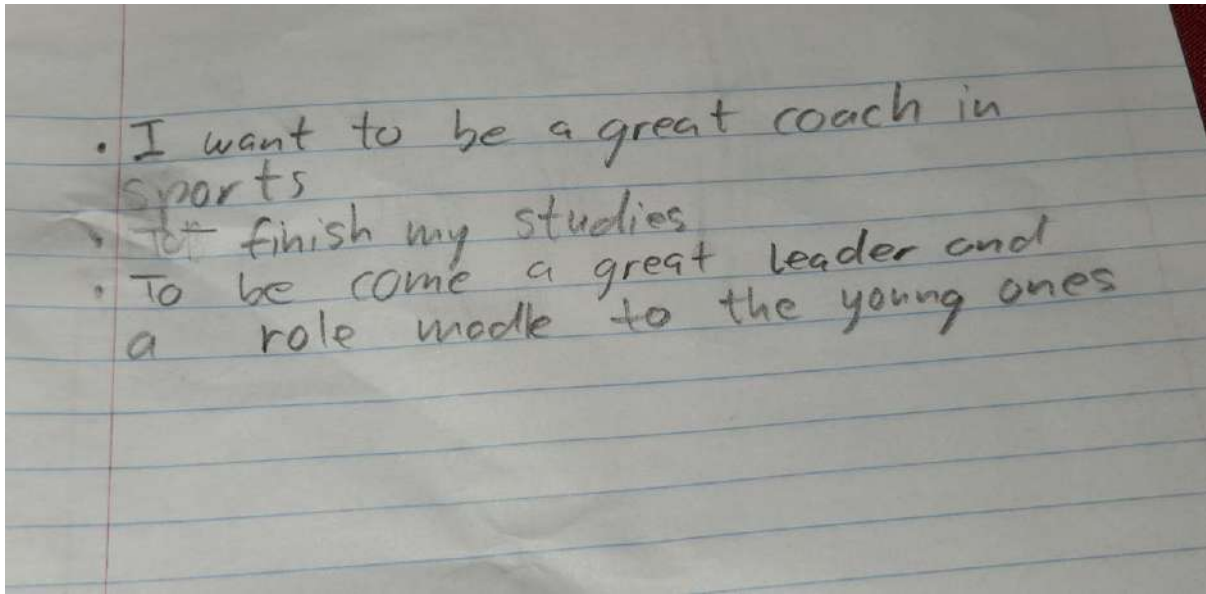 • I want to be a great coach in
sports
• To finish my studies
• To be come a great leader and
a role modle to the young ones